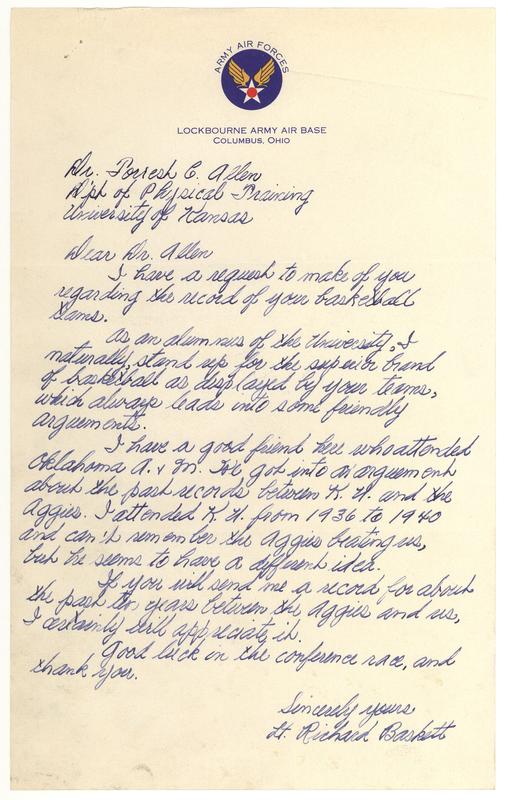 ARMY AIR FORCES
LOCKBOURNE ARMY AIR BASE
COLUMBUS, OHIO
Dr. Forrest C. Allen
D'pt of Physical Training
University of Kansas
Dear Dr. Allen
I have a request to make of you
regarding the record of your basketball
teams.
As an alumnus of the University, I
naturally, stand up for the superior brand
of basketball as displayed by your teams,
which always leads into some friendly
arguements.
I have a good friend here who attended
Oklahoma A. & M. We got into an arguement
about the past records between K. U. and the
Aggies. I attended K. U. from 1936 to 1940
and can't remember the Aggies beating us,
but he seems to have a different idea.
If you will send me a record for about
the past ten years between the Aggies and us,
I certainly will appreciate it.
Good luck in the conference race, and
thank you.
Sincerely yours
Lt. Richard Baskett